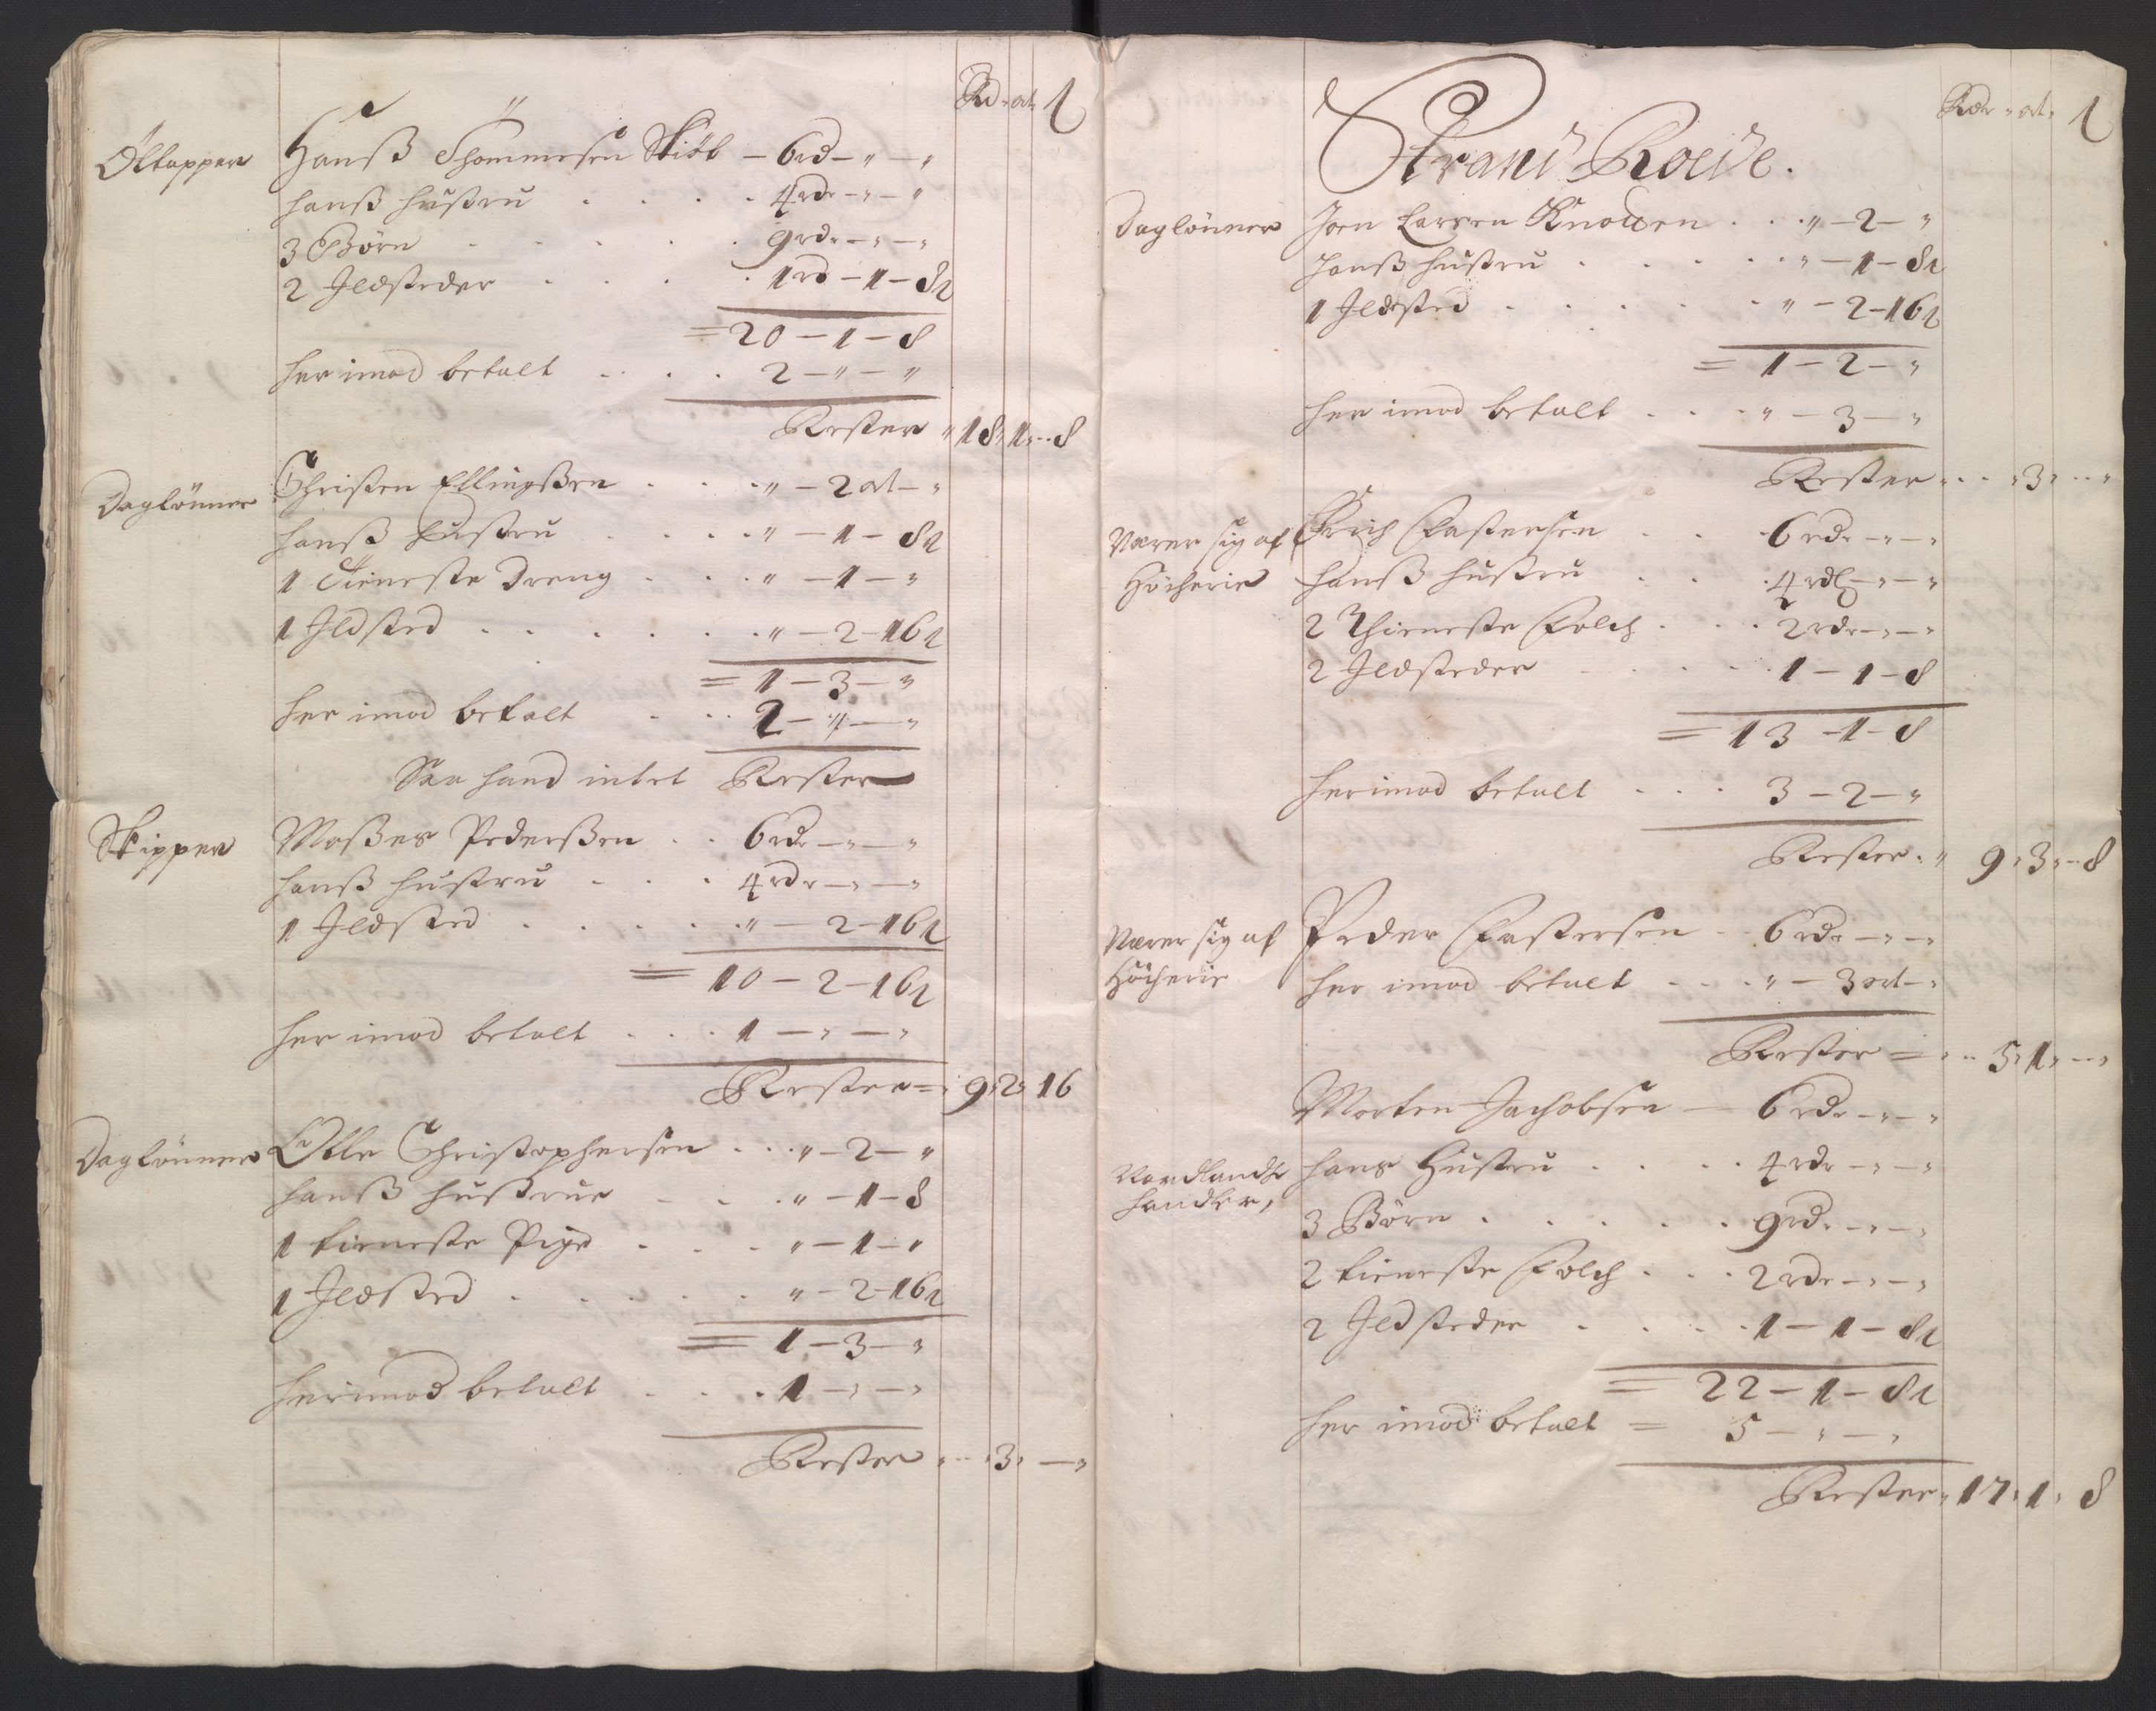 Rd - ort ß
Øltapper Hanß Thommesen Skiöt - 6rd - " - "
hanß hustru . . . . 4rdr - " - "
3 Börn . . . . . 9rdr - " - "
2 Jldsteder . . . . 1rd - 1 - 8ß
= 20 - 1 - 8
her imod betalt . . . . 2 - " - "
Rester " 18 " 1 " - 8
Daglönner Christen Ellingßen . . . " - 2 ort - "
hanß hustru . . . . " - 1 - 8ß
1 Tieneste Dreng . . . " - 1 - "
1 Jldsted . . . . . . " - 2 - 16ß
= 1 - 3 - "
her imod betalt . . . 2 - " - "
Saa hand intet Rester
Skipper Moßes Pederßen . . 6rdr - " - "
hanß hustru . . . 4rdr - " - "
1 Jldsted . . . . . " - 2 - 16ß
= 10 - 2 - 16ß
her imod betalt . . . 1 - " - "
Rester = " 9 " 2 " 16
Daglönner Olle Christophersen . . . " - 2 - "
hanß hustrue . . . " - 1 - 8
1 tieneste Pige . . . " - 1 - "
1 Jldsted . . . . . " - 2 - 16ß
= 1 - 3 - "
herimod betalt . . . 1 - " - "
Rester " - - " 3 " - "
Rdr - ort " ß
Strand Roede.
Daglönner Joen Larsen Knoeen . . . " - 2 - "
hanß hustru . . . . . " - 1 - 8ß
1 Jldsted . . . . . " - 2 - 16ß
= 1 - 2 - "
her imod betalt . . . " - 3 - "
Rester " . . " 3 " - - "
Nærer sig af Erich Castensen . . 6rdr - " - "
Höcherie hanß hustru . . 4rdl - " - "
2 Thieneste Folch . . . 2rdr - " - "
2 Jldsteder . . . . 1 - 1 - 8
= 13 - 1 - 8
herimod betalt . . . 3 - 2 - "
Rester . " 9 " 3 " - 8
Nærer sig af Peder Castensen - 6rdr - " - "
Höcherie her imod betalt . . . " - 3 ort - "
Rester = " - - 5 " 1 " - - "
Morten Jachobsen - 6rdr - " - "
Nordlandß hans Hustru . . . . 4rdr - " - "
handler, 3 Börn . . . . . . 9rdr - " - "
2 tieneste Folch . . . 2rdr - " - "
2 Jldsteder . . . . 1 - 1 - 8ß
= 22 - 1 - 8ß
her imod betalt = 5 - " - "
Rester " 17 " 1 " 8